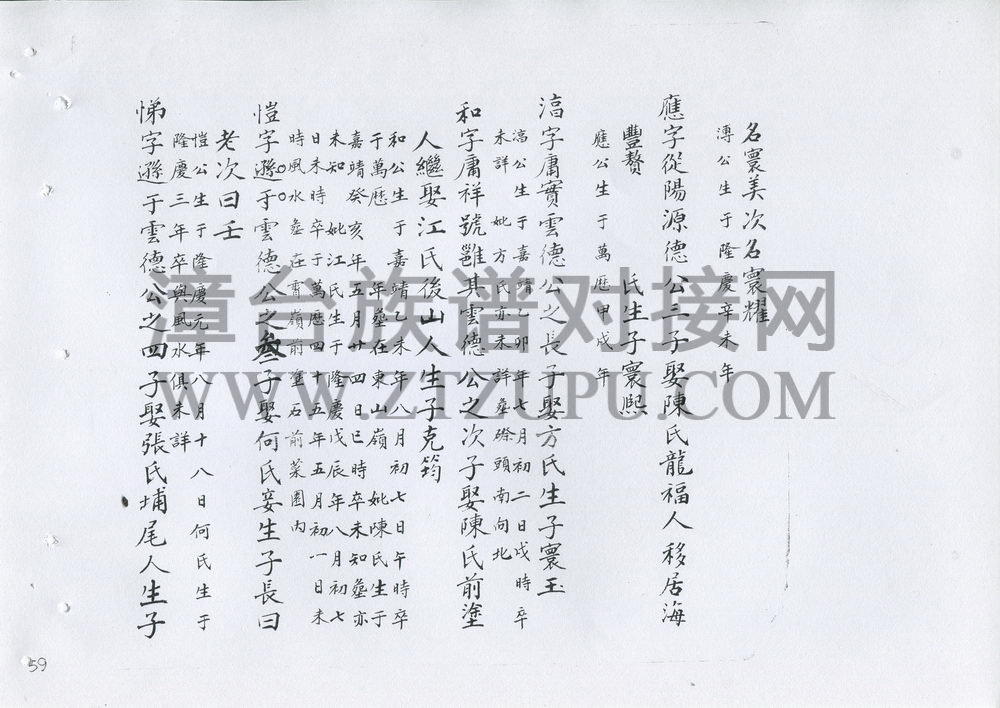 名寰美次名寰耀
溥公生于隆慶辛未年
應字從陽源德公三子娶陳氏龍福人移居海
豐贅 氏生子寰熙
應公生于萬歷甲戌年
滈字庸實雲德公之長子娶方氏生子寰玉
滈公生于嘉靖乙卯年七月初二日戌時卒
未詳 妣方氏亦未詳墓 頭南向北
和字庸祥號 其雲德公之次子娶陳氏前塗
人繼娶江氏後山人生子克筠
和公生于嘉靖乙未年八月初七日午時卒
于萬歷 年墓在東山嶺 妣陳氏生于
嘉靖癸亥年五月廿四日巳時卒未知墓亦
未知 妣江氏生于隆慶戊辰年八月初七
日未時卒于萬歷四十五年五月初一日未
時風水墓在 嶺前 石前菜園內
愷字遜于雲德公之叁子娶何氏妾生子長曰
老次曰壬
愷公生于隆慶元年八月十八日何氏生于
隆慶三年卒與風水俱未詳
悌字遜于雲德公之四子娶張氏埔尾人生子
漳台族谱对接网
WWW.ZTZUPU.COM
59